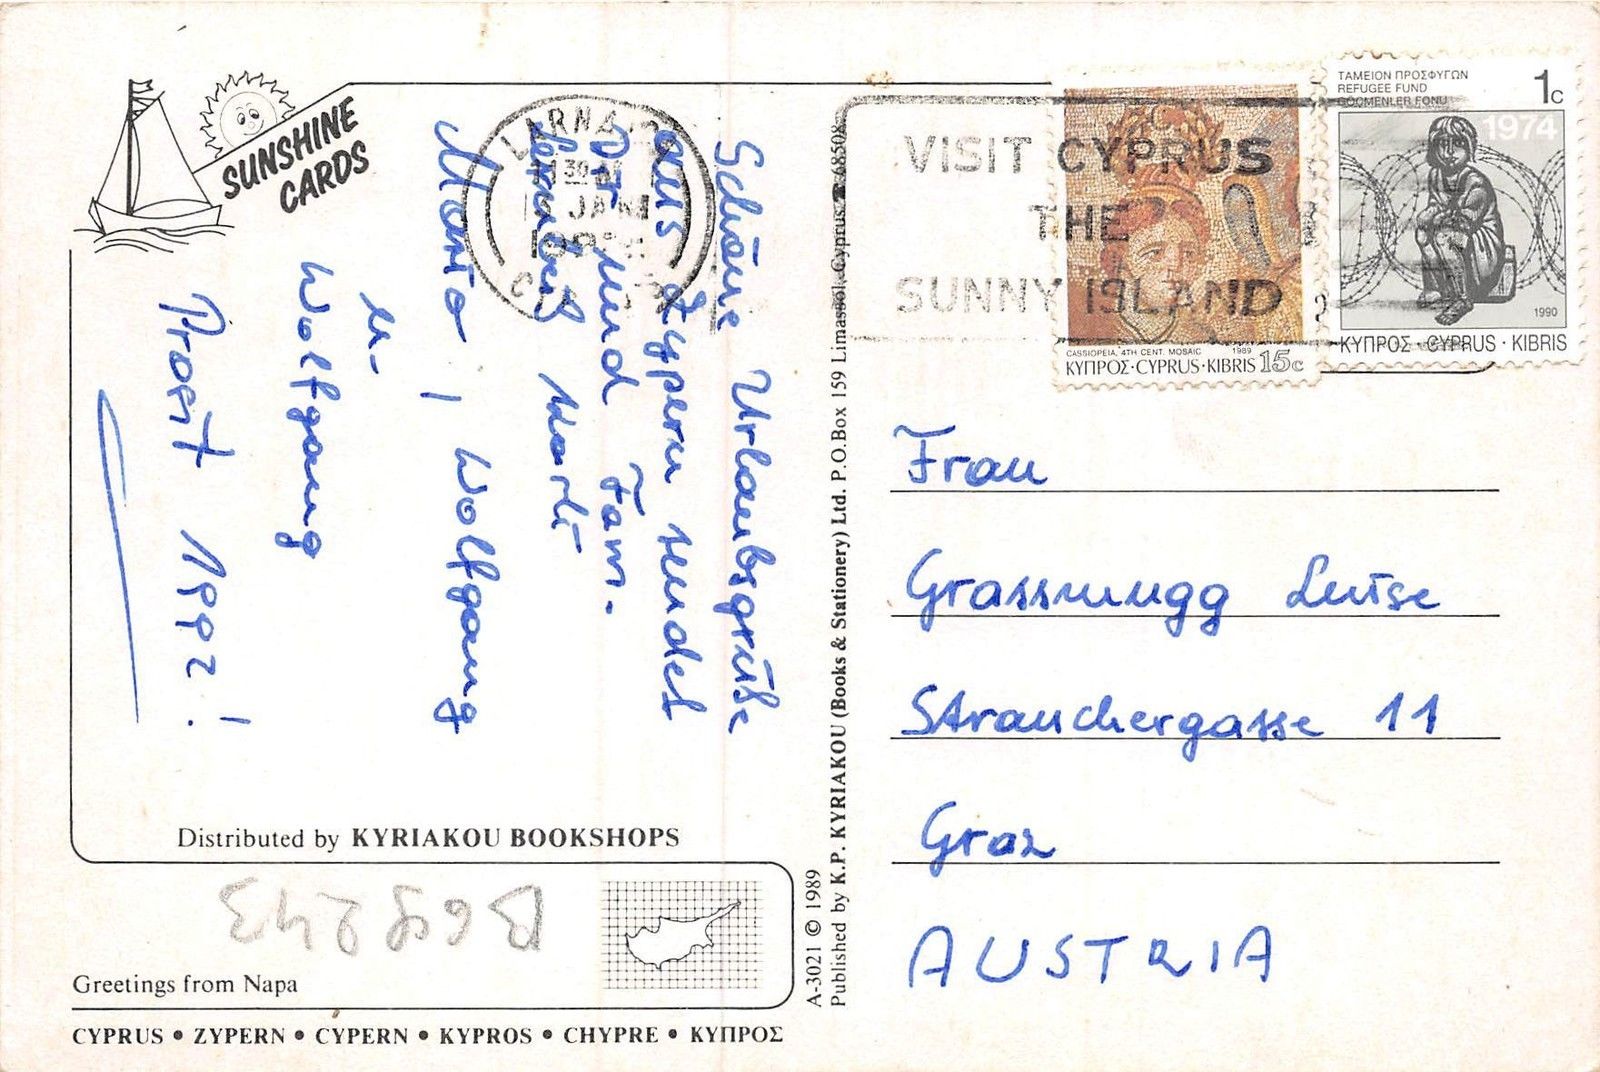 SUNSHINE
CARDS
Schöne Urlaubsgrüße
aus Zypern sendet
Dir und Fam.
Mario, Wolfgang
u.
Wolfgang
Prosit 1992!
LARNACA
VISIT CYPRUS
THE
SUNNY ISLAND
CASSIOPEIA, 4TH CENT. MOSAIC 1989
ΚΥΠΡΟΣ·CYPRUS·KIBRIS 15c
ΤΑΜΕΙΟΝ ΠΡΟΣΦΥΓΩΝ 1c
REFUGEE FUND
GÖÇMENLER FONU
1974
1990
ΚΥΠΡΟΣ · CYPRUS · KIBRIS
Frau
Grassmugg Luise
Strauchergasse 11
Graz
AUSTRIA
Distributed by KYRIAKOU BOOKSHOPS
B68243
Greetings from Napa
CYPRUS • ZYPERN • CYPERN • KYPROS • CHYPRE • ΚΥΠΡΟΣ
A-3021 © 1989
Published by K.P. KYRIAKOU (Books & Stationery) Ltd. P.O.Box 159 Limassol, Cyprus. ☎ 68508